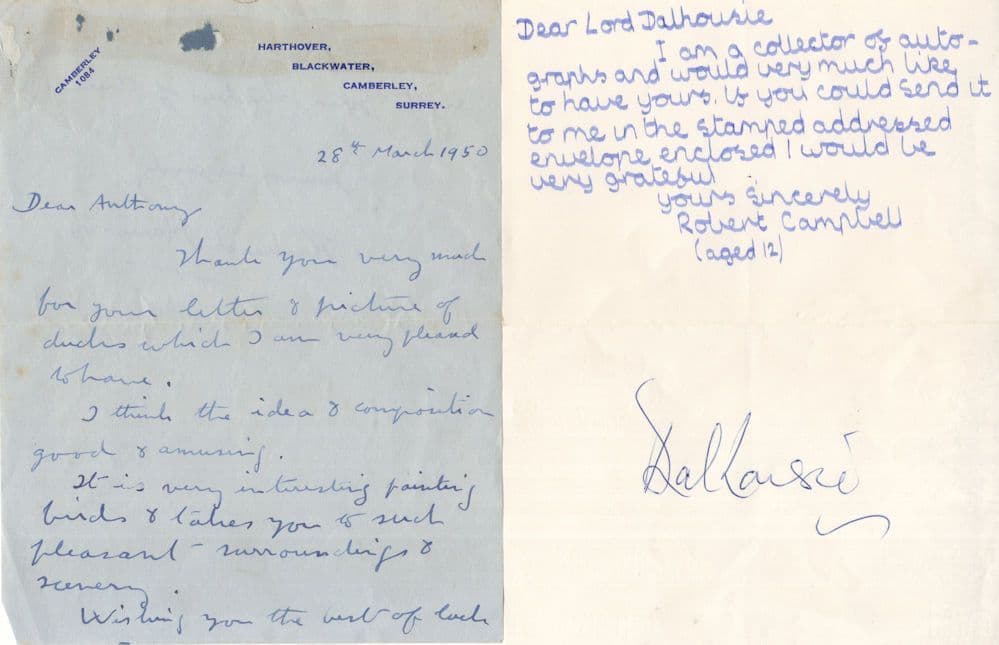 CAMBERLEY
1084
HARTHOVER,
BLACKWATER,
CAMBERLEY,
SURREY.
28th March 1950
Dear Anthony
Thank you very much
for your letter & picture of
ducks which I am very pleased
to have.
I think the idea & composition
good & amusing.
It is very interesting painting
birds & takes you to such
pleasant surroundings &
scenery.
Wishing you the best of luck
Dear Lord Dalhousie
I am a collector of auto-
graphs and would very much like
to have yours. If you could send it
to me in the stamped addressed
envelope enclosed I would be
very grateful
yours sincerely
Robert Campbell
(aged 12)
Dalhousie